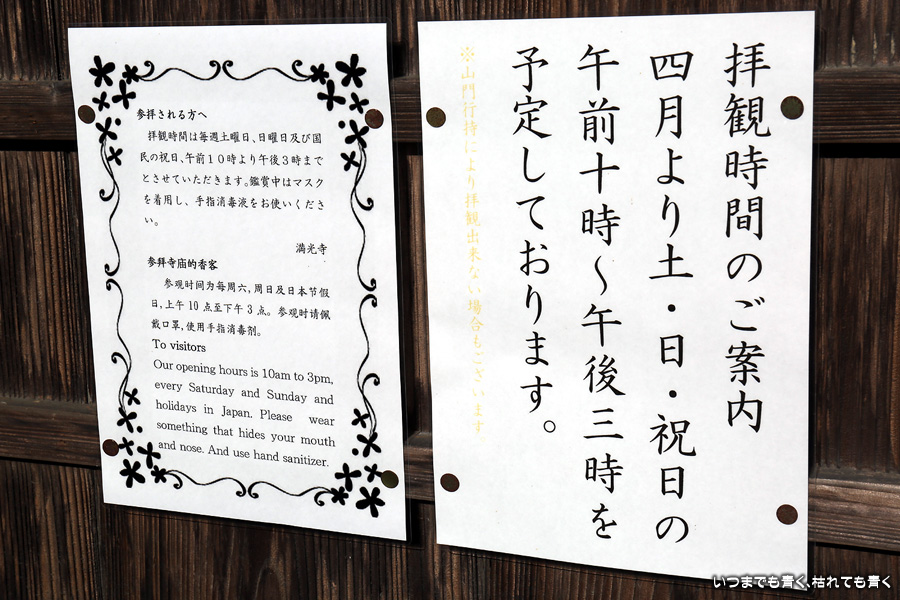 参拝される方へ
拝観時間は毎週土曜日、日曜日及び国
民の祝日、午前１０時より午後３時まで
とさせていただきます。鑑賞中はマスク
を着用し、手指消毒液をお使いくださ
い。
満光寺
参拜寺庙的香客
参观时间为每周六，周日及日本节假
日，上午 10 点至下午 3 点。参观时请佩
戴口罩，使用手指消毒剂。
To visitors
Our opening hours is 10am to 3pm,
every Saturday and Sunday and
holidays in Japan. Please wear
something that hides your mouth
and nose. And use hand sanitizer.
拝観時間のご案内
四月より土・日・祝日の
午前十時～午後三時を
予定しております。
※山門行持により拝観出来ない場合もございます。
いつまでも青く、枯れても青く